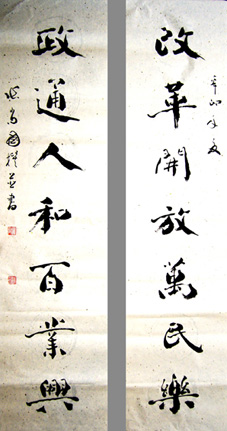 改革開放萬民樂
辛卯年夏
政通人和百業興